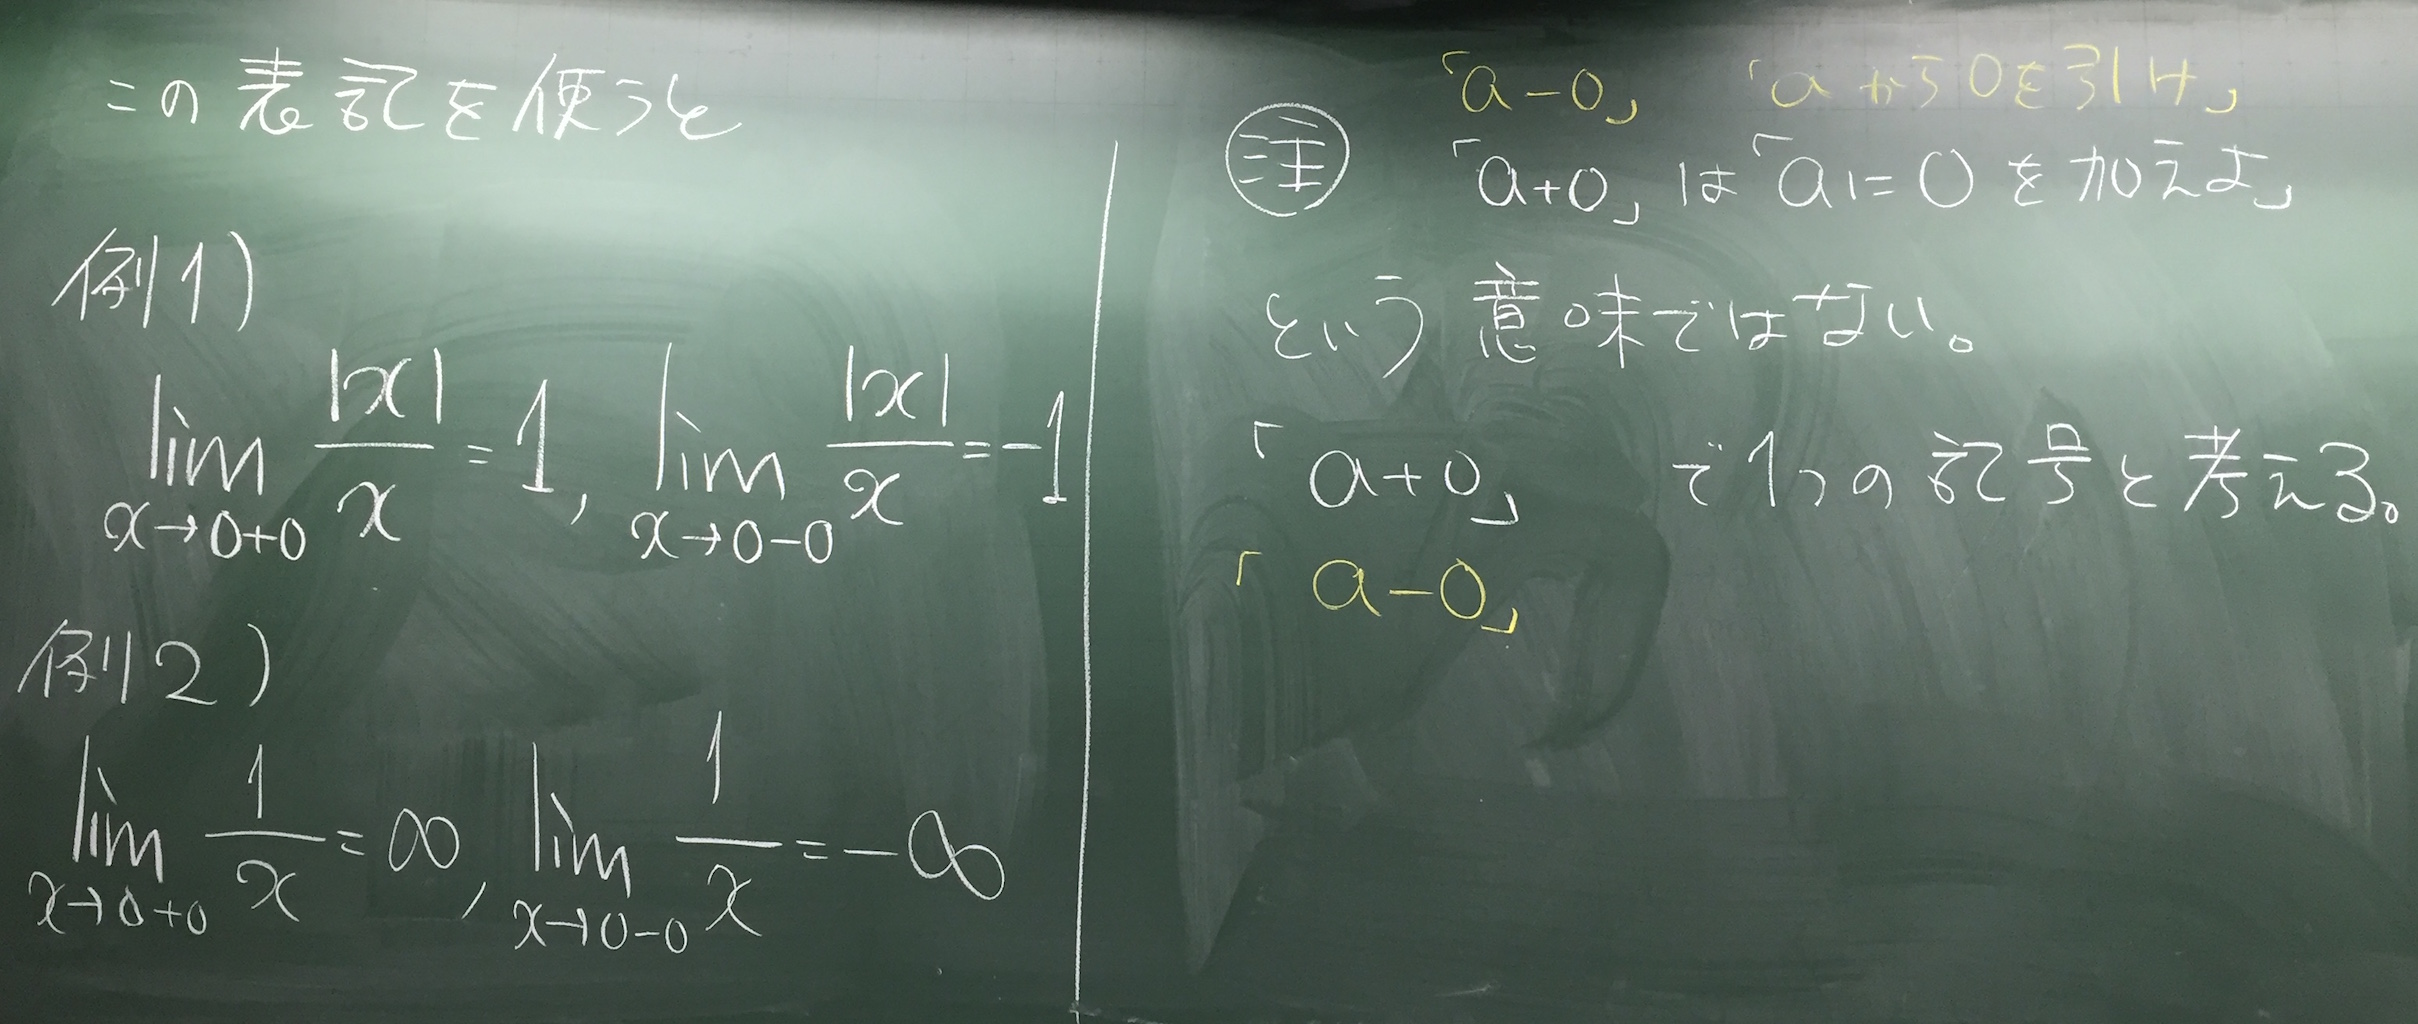 この表記を使うと
例1)
lim_{x→0+0} |x|/x = 1, lim_{x→0-0} |x|/x = -1
例2)
lim_{x→0+0} 1/x = ∞, lim_{x→0-0} 1/x = -∞
「a-0」 「aから0を引け」
注 「a+0」は「aに0を加えよ」
という意味ではない。
「a+0」 で1つの記号と考える。
「a-0」